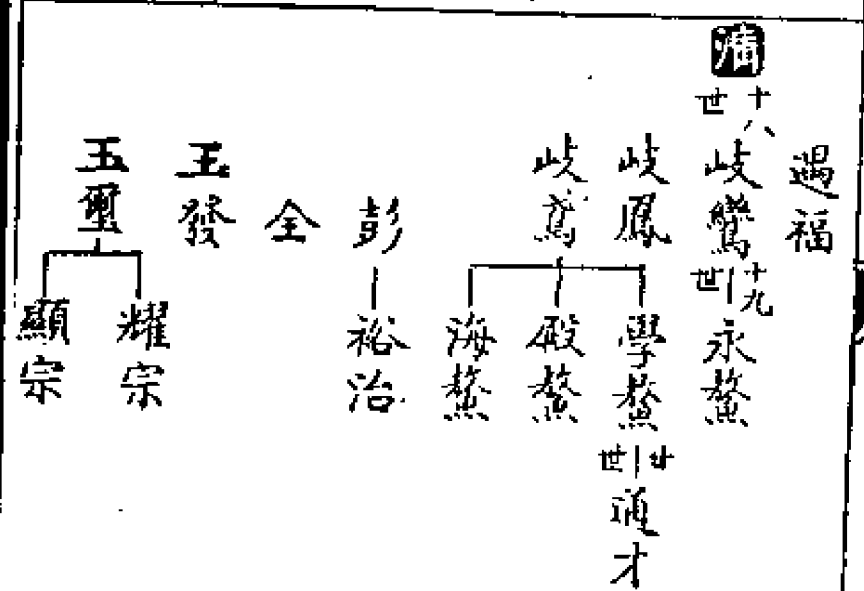 遇福
十八世
岐鸞
十九世
永鰲
岐鳳
岐鳶
學鰲
廿世
通才
殿鰲
海鰲
彭
裕治
全
玉發
玉璽
耀宗
顯宗